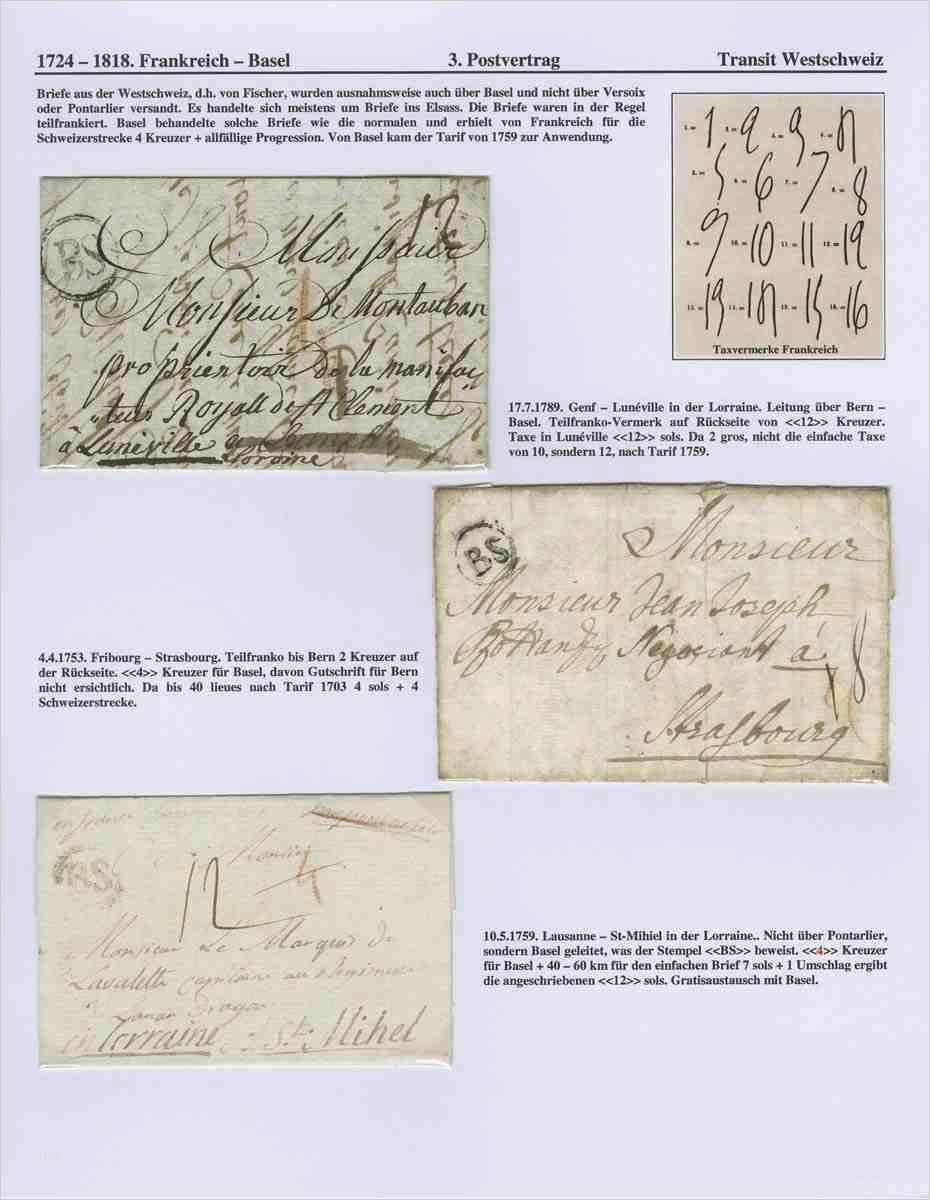 1724 – 1818. Frankreich – Basel 3. Postvertrag Transit Westschweiz
Briefe aus der Westschweiz, d.h. von Fischer, wurden ausnahmsweise auch über Basel und nicht über Versoix
oder Pontarlier versandt. Es handelte sich meistens um Briefe ins Elsass. Die Briefe waren in der Regel
teilfrankiert. Basel behandelte solche Briefe wie die normalen und erhielt von Frankreich für die
Schweizerstrecke 4 Kreuzer + allfällige Progression. Von Basel kam der Tarif von 1759 zur Anwendung.
Taxvermerke Frankreich
BS
12
Monsieur
Monsieur De Montauban
proprientoir de la manifac
teur Royall de St Clement
à Lunéville en
Loroine
17.7.1789. Genf – Lunéville in der Lorraine. Leitung über Bern –
Basel. Teilfranko-Vermerk auf Rückseite von <<12>> Kreuzer.
Taxe in Lunéville <<12>> sols. Da 2 gros, nicht die einfache Taxe
von 10, sondern 12, nach Tarif 1759.
BS
Monsieur
Monsieur Jean Joseph
Negociant à
8
Strasbourg
4.4.1753. Fribourg – Strasbourg. Teilfranko bis Bern 2 Kreuzer auf
der Rückseite. <<4>> Kreuzer für Basel, davon Gutschrift für Bern
nicht ersichtlich. Da bis 40 lieues nach Tarif 1703 4 sols + 4
Schweizerstrecke.
BS
12 4
Monsieur Le Marquis de
Lavalette capitaine au Regiment
en Lorraine à St. Mihel
10.5.1759. Lausanne – St-Mihiel in der Lorraine.. Nicht über Pontarlier,
sondern Basel geleitet, was der Stempel <<BS>> beweist. <<4>> Kreuzer
für Basel + 40 – 60 km für den einfachen Brief 7 sols + 1 Umschlag ergibt
die angeschriebenen <<12>> sols. Gratisaustausch mit Basel.